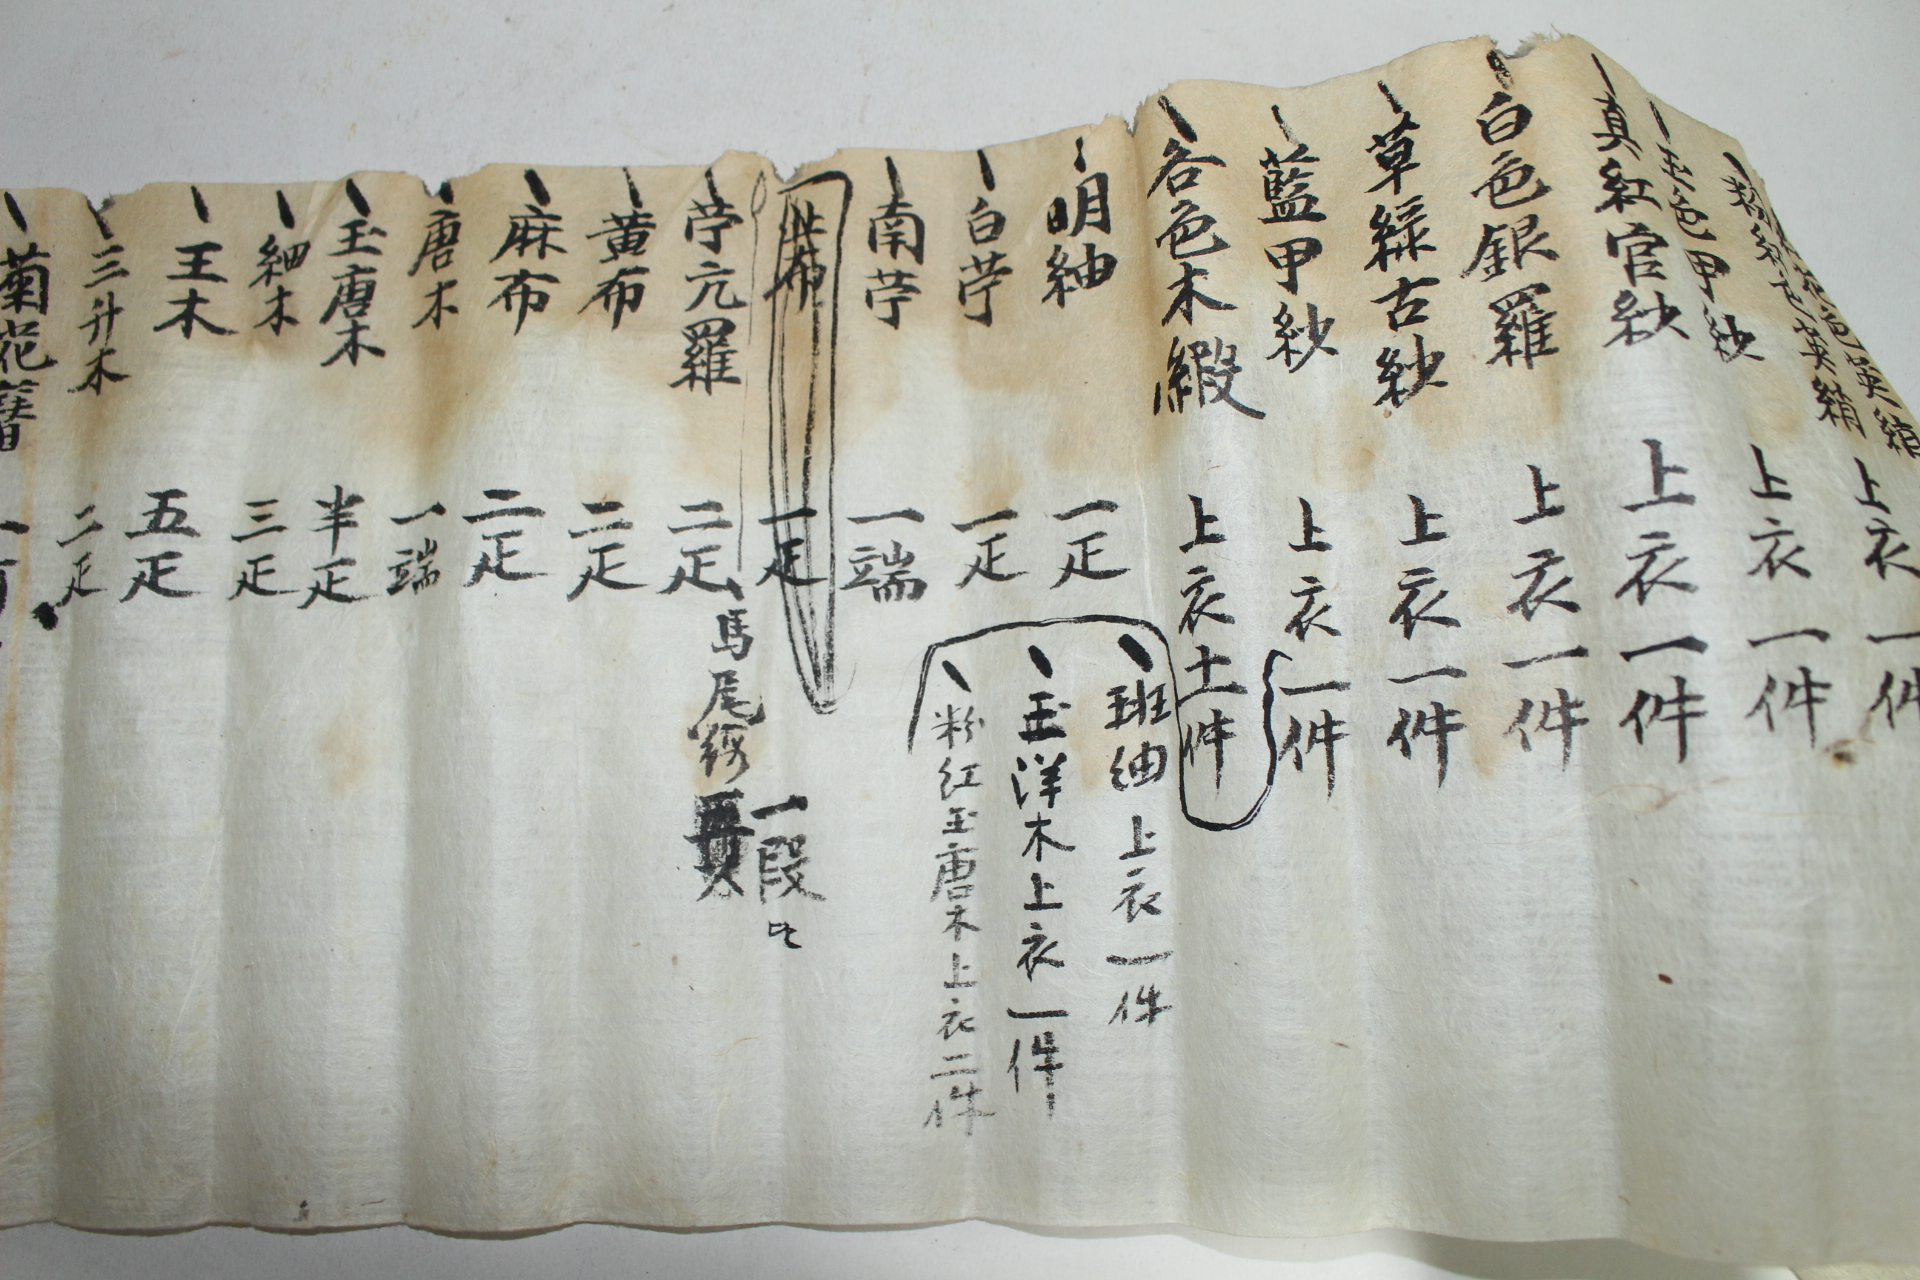 色英綃
粉紅色英綃 上衣一件
玉色甲紗 上衣一件
真紅官紗 上衣一件
白色銀羅 上衣一件
草綠古紗 上衣一件
藍甲紗 上衣一件
各色木緞 上衣十件
班紬上衣一件
玉洋木上衣一件
粉紅玉唐木上衣二件
明紬 一疋
白苧 一疋
南苧 一端
北布 一疋
苧亢羅 二疋
馬尾
一段
黃布 二疋
麻布 二疋
唐木 一端
玉唐木 半疋
細木 三疋
王木 五疋
三升木 二疋
菊花